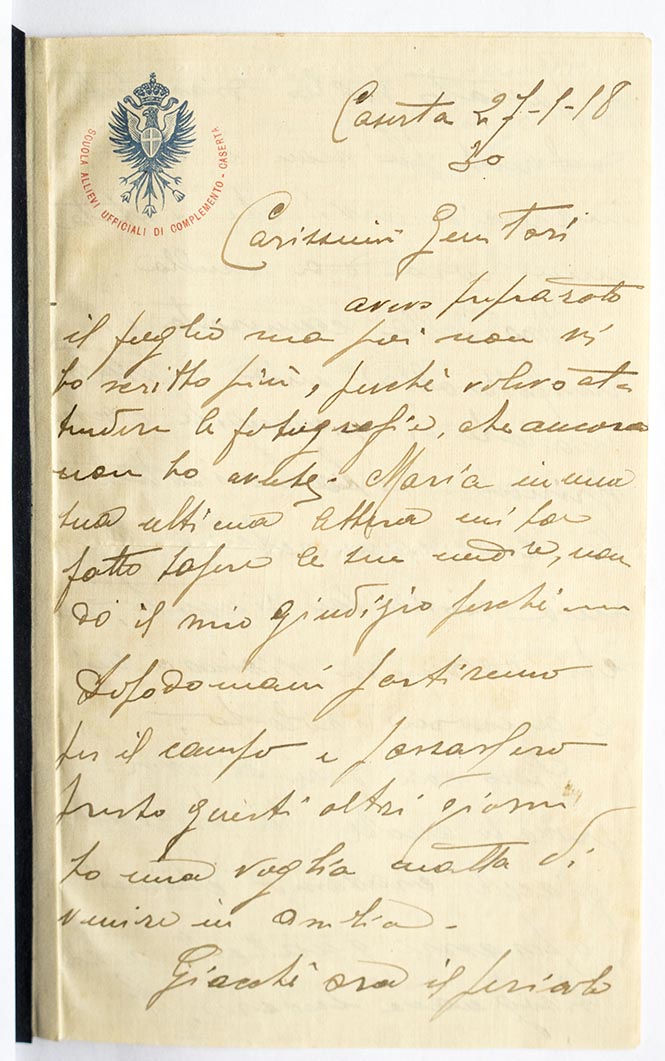 SCUOLA ALLIEVI UFFICIALI DI COMPLEMENTO - CASERTA
Caserta 27-1-18
30
Carissimi Genitori
avevo preparato
il foglio ma poi non vi
ho scritto più, perchè volevo at-
tendere le fotografie, che ancora
non ho avute. Maria in una
sua ultima lettera mi ha
fatto sapere le sue, non
dò il mio giudizio perchè
Dopodomani partiremo
per il campo e passassero
presto questi altri giorni
ho una voglia matta di
venire in
Giacchè ora il pericolo